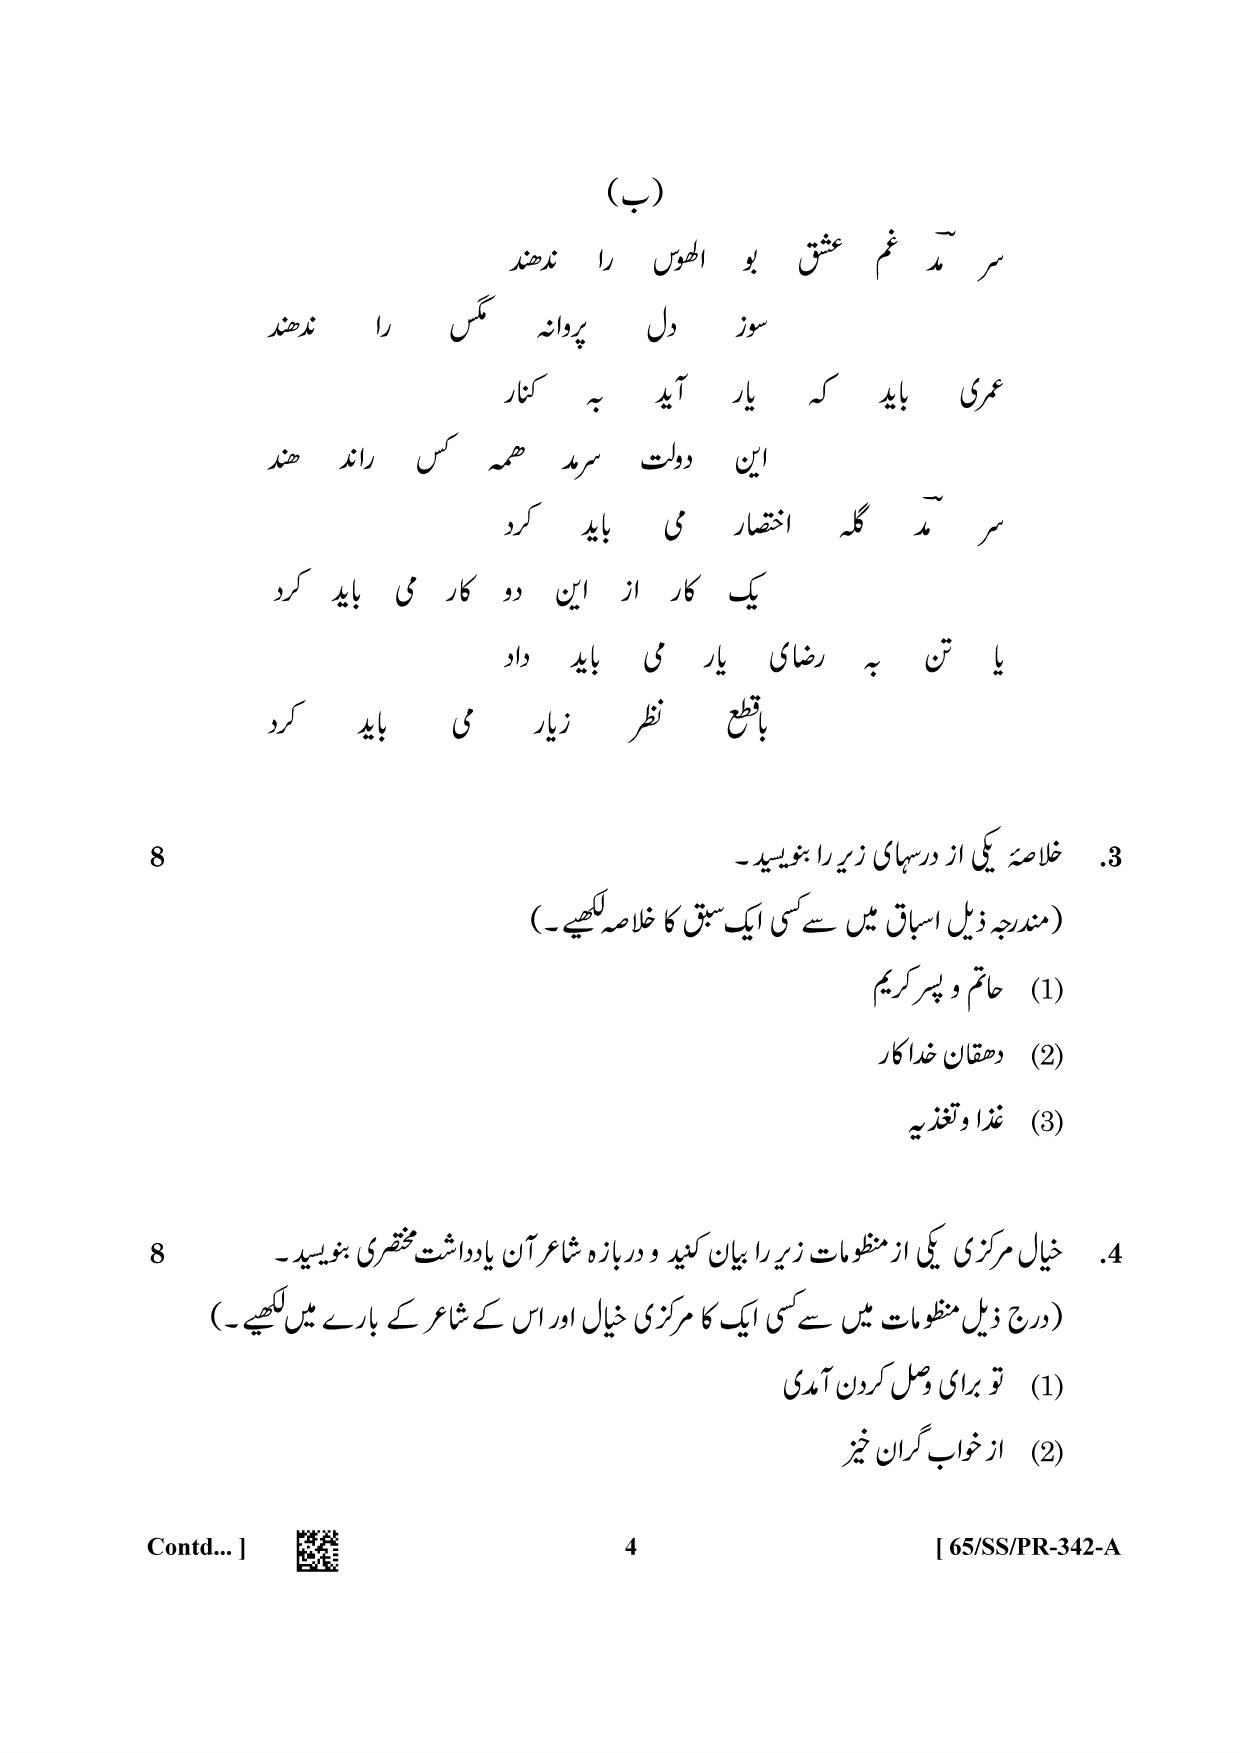 (ب)
سر مدؔ غم عشق بو الھوس را ندھند
سوز دل پروانہ مگس را ندھند
عمری باید کہ یار آید بہ کنار
این دولت سرمد ھمہ کس راند ھند
سر مدؔ گلہ اختصار می باید کرد
یک کار از این دو کار می باید کرد
یا تن بہ رضای یار می باید داد
باقطع نظر زیار می باید کرد
3. خلاصۂ یکی از درسہای زیر را بنویسید۔ 8
(مندرجہ ذیل اسباق میں سے کسی ایک سبق کا خلاصہ لکھیے۔)
(1) حاتم و پسر کریم
(2) دھقان خدا کار
(3) غذا و تغذیہ
4. خیال مرکزی یکی از منظومات زیر را بیان کنید و دربازہ شاعر آن یادداشت مختصری بنویسید۔ 8
(درج ذیل منظومات میں سے کسی ایک کا مرکزی خیال اور اس کے شاعر کے بارے میں لکھیے۔)
(1) تو برای وصل کردن آمدی
(2) از خواب گران خیز
Contd... ] 4 [ 65/SS/PR-342-A